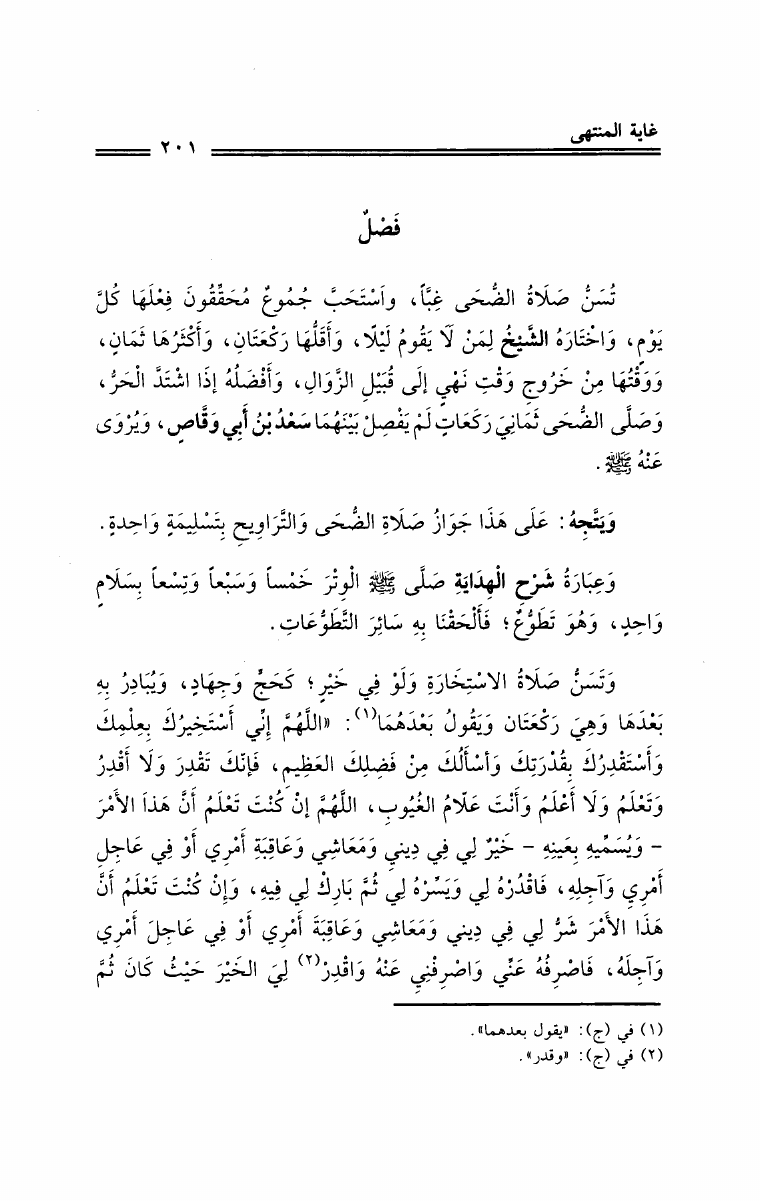 غاية المنتهى
٢٠١
فَصْلٌ
تُسَنُّ صَلَاةُ الضُّحَى غِبَّاً، واَسْتَحَبَّ جُمُوعٌ مُحَقِّقُونَ فِعْلَهَا كُلَّ
يَوْمٍ، وَاخْتَارَهُ الشَّيْخُ لِمَنْ لَا يَقُومُ لَيْلًا، وَأَقَلُّهَا رَكْعَتَانِ، وَأَكْثَرُهَا ثَمَانٍ،
وَوَقْتُهَا مِنْ خَرُوجِ وَقْتِ نَهْيٍ إلَى قُبَيْلِ الزَّوَالِ، وَأَفْضَلُهُ إذَا اشْتَدَّ الْحَرُّ،
وَصَلَّى الضُّحَى ثَمَانِيَ رَكَعَاتٍ لَمْ يَفْصِلْ بَيْنَهُمَا سَعْدُ بْنُ أَبِي وَقَّاصٍ، وَيُرْوَى
عَنْهُ ﷺ.
وَيَتَّجِهُ: عَلَى هَذَا جَوَازُ صَلَاةِ الضُّحَى وَالتَّرَاوِيحِ بِتَسْلِيمَةٍ وَاحِدةٍ.
وَعِبَارَةُ شَرْحِ الْهِدَايَةِ صَلَّى ﷺ الْوِتْرَ خَمْساً وَسَبْعاً وَتِسْعاً بِسَلَامٍ
وَاحِدٍ، وَهُوَ تَطَوُّعٌ؛ فَأَلْحَقْنَا بِهِ سَائِرَ التَّطَوُّعَاتِ.
وَتَسَنُّ صَلَاةُ الاسْتِخَارَةِ وَلَوْ فِي خَيْرٍ؛ كَحَجٍّ وَجِهَادٍ، وَيُبَادِرُ بِهِ
بَعْدَهَا وَهِيَ رَكْعَتَان وَيَقُولُ بَعْدَهُمَا(١): «اللَّهُمَّ إنِّي أَسْتَخِيرُكَ بِعِلْمِكَ
وَأَسْتَقْدِرُكَ بِقُدْرَتِكَ وَأَسْأَلُكَ مِنْ فَضلِكَ العَظِيمِ، فَإنّكَ تَقْدِرَ وَلَا أَقْدِرُ
وَتَعْلَمُ وَلَا أَعْلَمُ وَأَنْتَ عَلَّامُ الغُيُوبِ، اللَّهُمَّ إنْ كُنْتَ تَعْلَمُ أَنَّ هَذاَ الأمْرَ
- وَيُسَمِّيهِ بِعَينِهِ - خَيْرٌ لِي فِي دِينِي وَمَعَاشِي وَعَاقِبَةِ أَمْرِي أَوْ فِي عَاجِلِ
أَمْرِي وَآجِلِهِ، فَاقْدُرْهُ لِي وَيَسِّرْهُ لِي ثُمَّ بَارِكْ لِي فِيهِ، وَإنْ كُنْتَ تَعْلَمُ أَنَّ
هَذَا الأمْرَ شَرٌّ لِي فِي دِيني وَمَعَاشِي وَعَاقِبَةَ أَمْرِي أَوْ فِي عَاجِلَ أَمْرِي
وَآجِلَهُ، فَاصْرِفْهُ عَنِّي وَاصْرِفْنِي عَنْهُ وَاقْدِرْ(٢) لِيَ الخَيْرَ حَيْثُ كَانَ ثُمَّ
(١) في (ج): «يقول بعدهما».
(٢) في (ج): «وقدر».